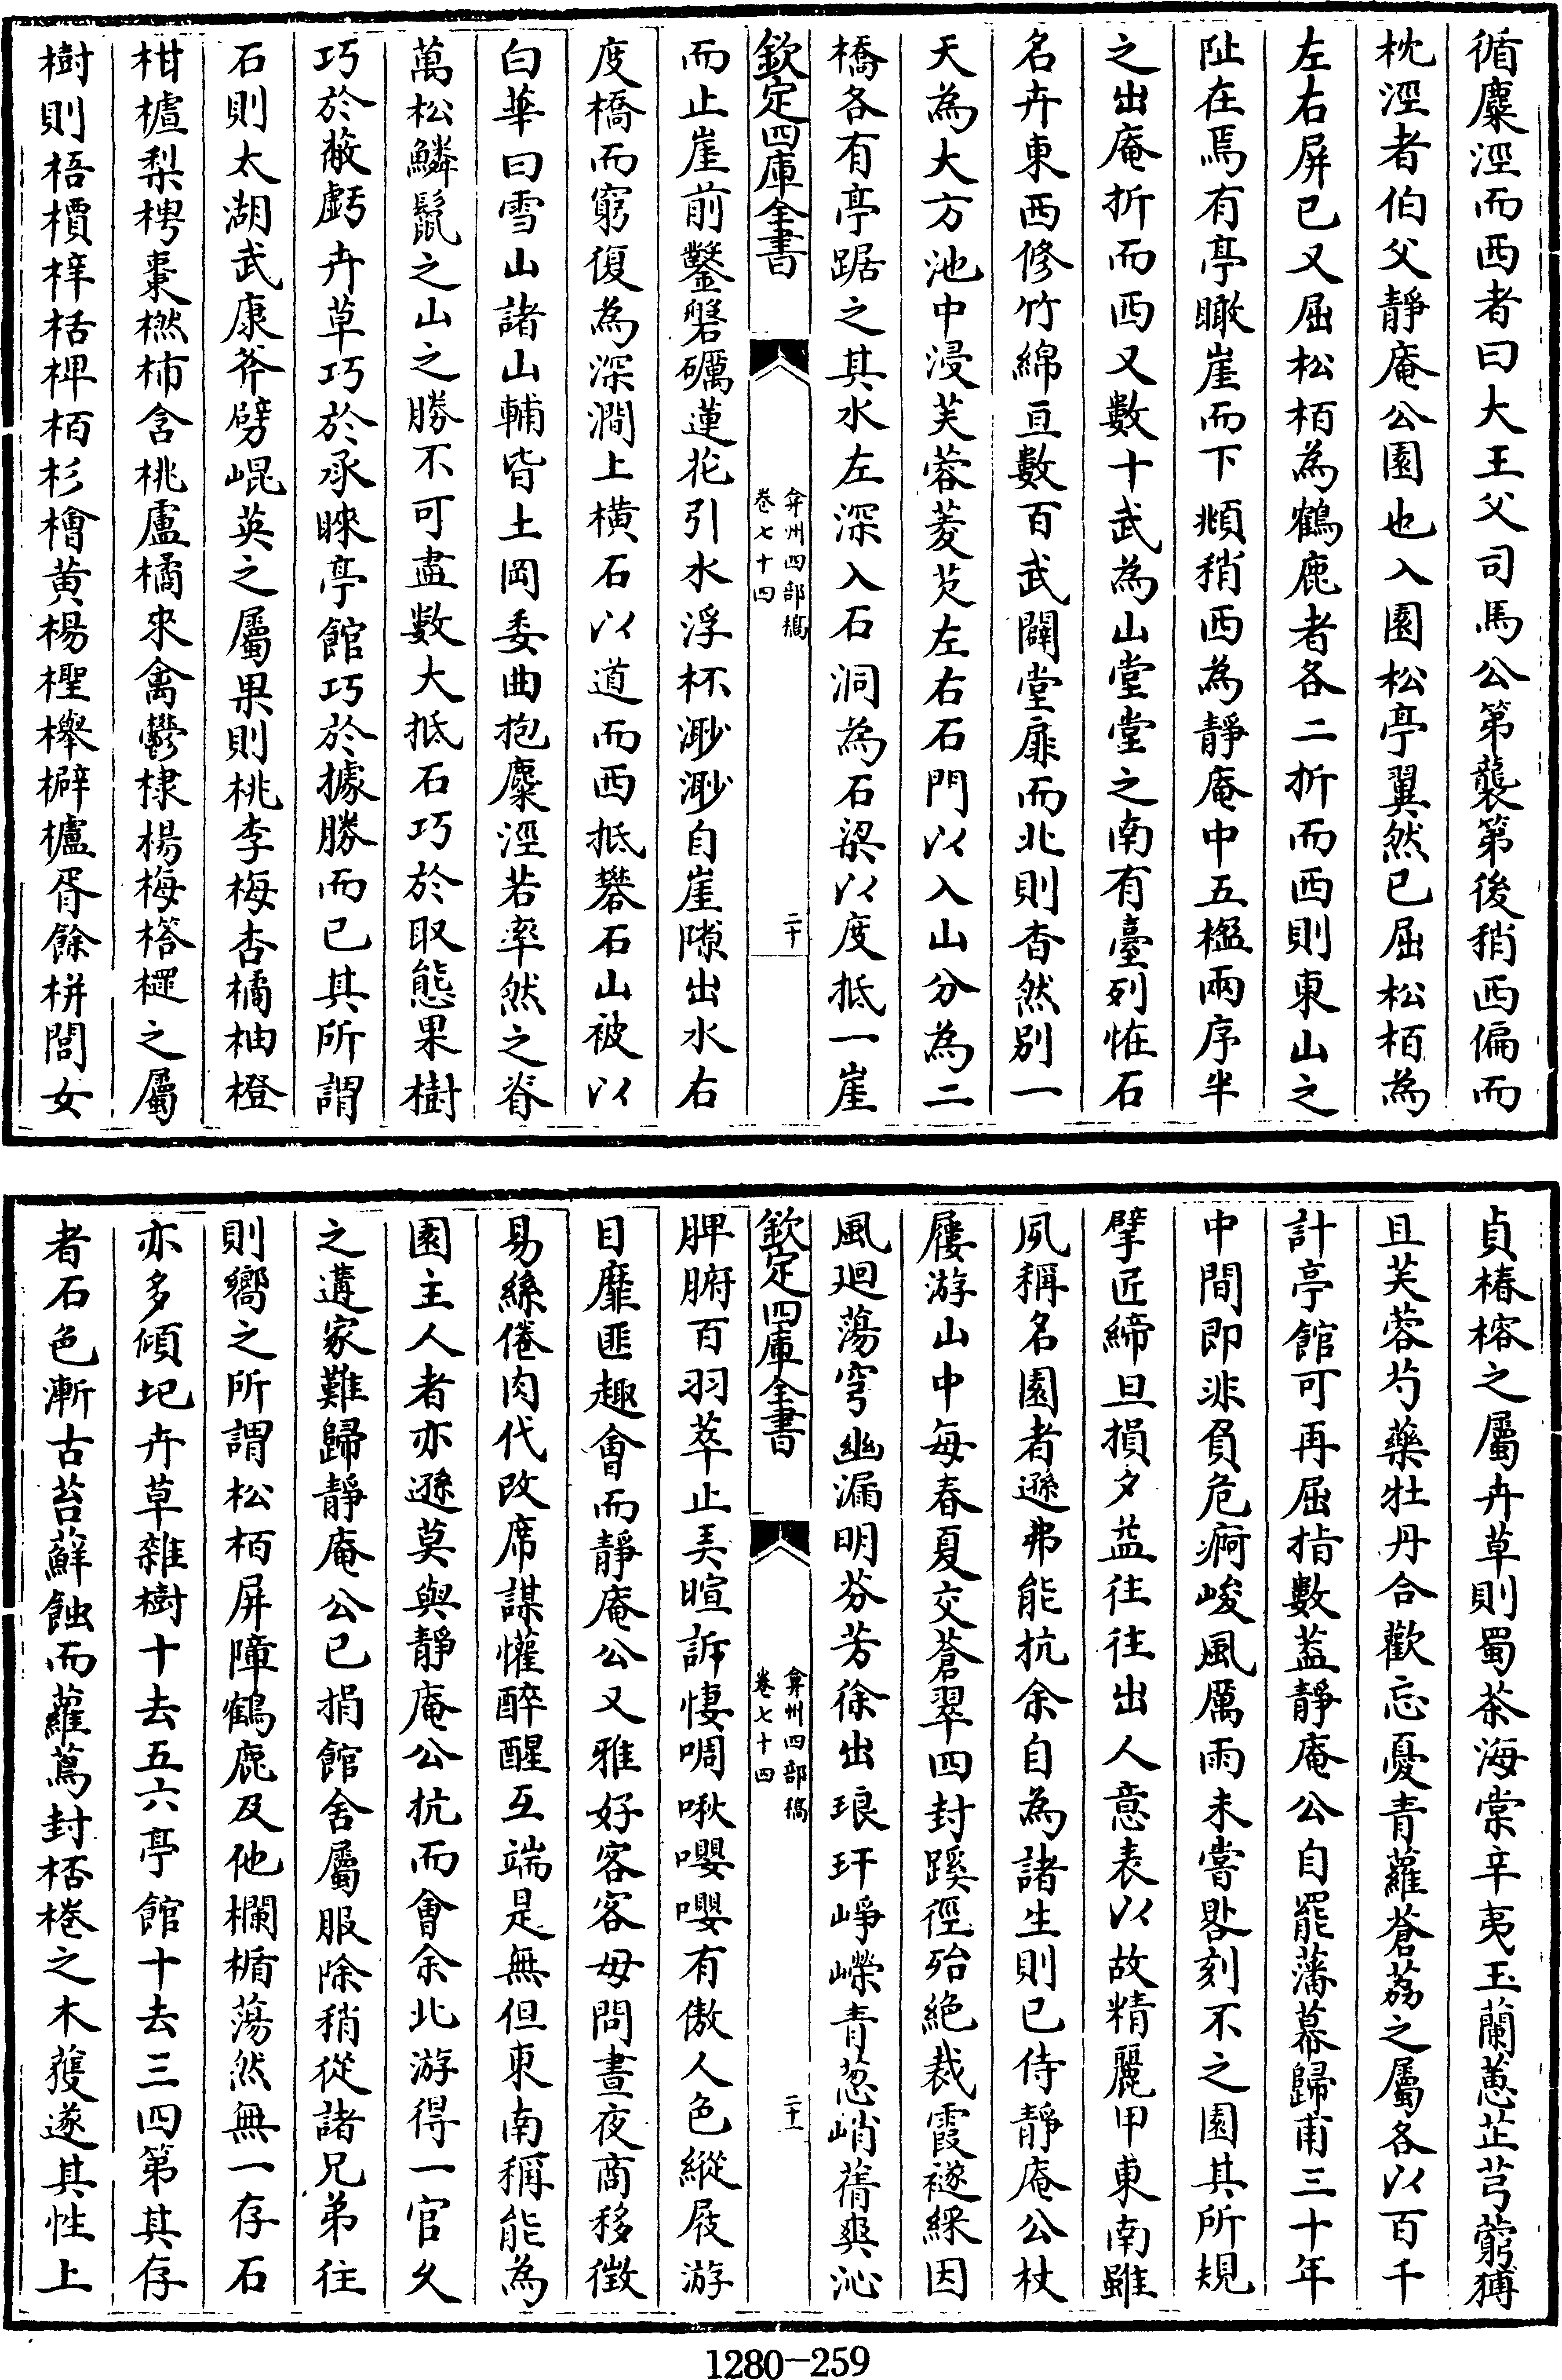 循麋涇而西者曰大王父司馬公第襲第後稍西偏而
枕涇者伯父靜庵公園也入園松亭翼然已屈松栢為
左右屏已又屈松栢為鶴鹿者各二折而西則東山之
阯在焉有亭瞰崖而下頫稍西為靜庵中五楹兩序半
之出庵折而西又數十武為山堂堂之南有臺列恠石
名卉東西修竹綿亘數百武闢堂扉而北則杳然別一
天為大方池中浸芙蓉菱芡左右石門以入山分為二
橋各有亭踞之其水左深入石洞為石梁以度抵一崖
欽定四庫全書
弇州四部稿
卷七十四
二十
而止崖前鑿磐礪蓮花引水浮杯渺渺自崖隙出水右
度橋而窮復為深澗上橫石以道而西抵礬石山被以
白華曰雪山諸山輔皆土岡委曲抱麋涇若率然之脊
萬松鱗鬣之山之勝不可盡數大抵石巧於取態果樹
巧於蔽虧卉草巧於承睞亭館巧於據勝而已其所謂
石則太湖武康斧劈崐英之屬果則桃李梅杏橘柚橙
柑樝梨梬棗橪柿含桃盧橘來禽鬱棣楊梅榙㯓之屬
樹則梧檟梓栝椑栢杉檜黃楊檉櫸檘櫨胥餘栟閭女
貞椿榕之屬卉草則蜀茶海棠辛夷玉蘭蕙芷芎藭搏
且芙蓉芍藥牡丹合歡忘憂青蘿蒼荔之屬各以百千
計亭館可再屈指數蓋靜庵公自罷藩幕歸甫三十年
中間即非負危痾峻風厲雨未嘗晷刻不之園其所規
擘匠締旦損夕益往往出人意表以故精麗甲東南雖
夙稱名園者遜弗能抗余自為諸生則已侍靜庵公杖
屨游山中每春夏交蒼翠四封蹊徑殆絕裁霞襚綵因
風廻蕩穹幽漏明芬芳徐出琅玕崢嶸青葱峭蒨爽沁
欽定四庫全書
弇州四部稿
卷七十四
二十一
脾腑百羽萃止弄暄訴悽啁啾嚶嚶有傲人色縱屐游
目靡匪趣會而靜庵公又雅好客客毋問晝夜商移徵
易絲倦肉代改席謀懽醉醒互端是無但東南稱能為
園主人者亦遜莫與靜庵公抗而會余北游得一官久
之遘家難歸靜庵公已捐館舍屬服除稍從諸兄弟往
則嚮之所謂松栢屏障鶴鹿及他欄楯蕩然無一存石
亦多傾圮卉草雜樹十去五六亭館十去三四第其存
者石色漸古苔蘚蝕而蘿蔦封桮棬之木蒦遂其性上
1280—259